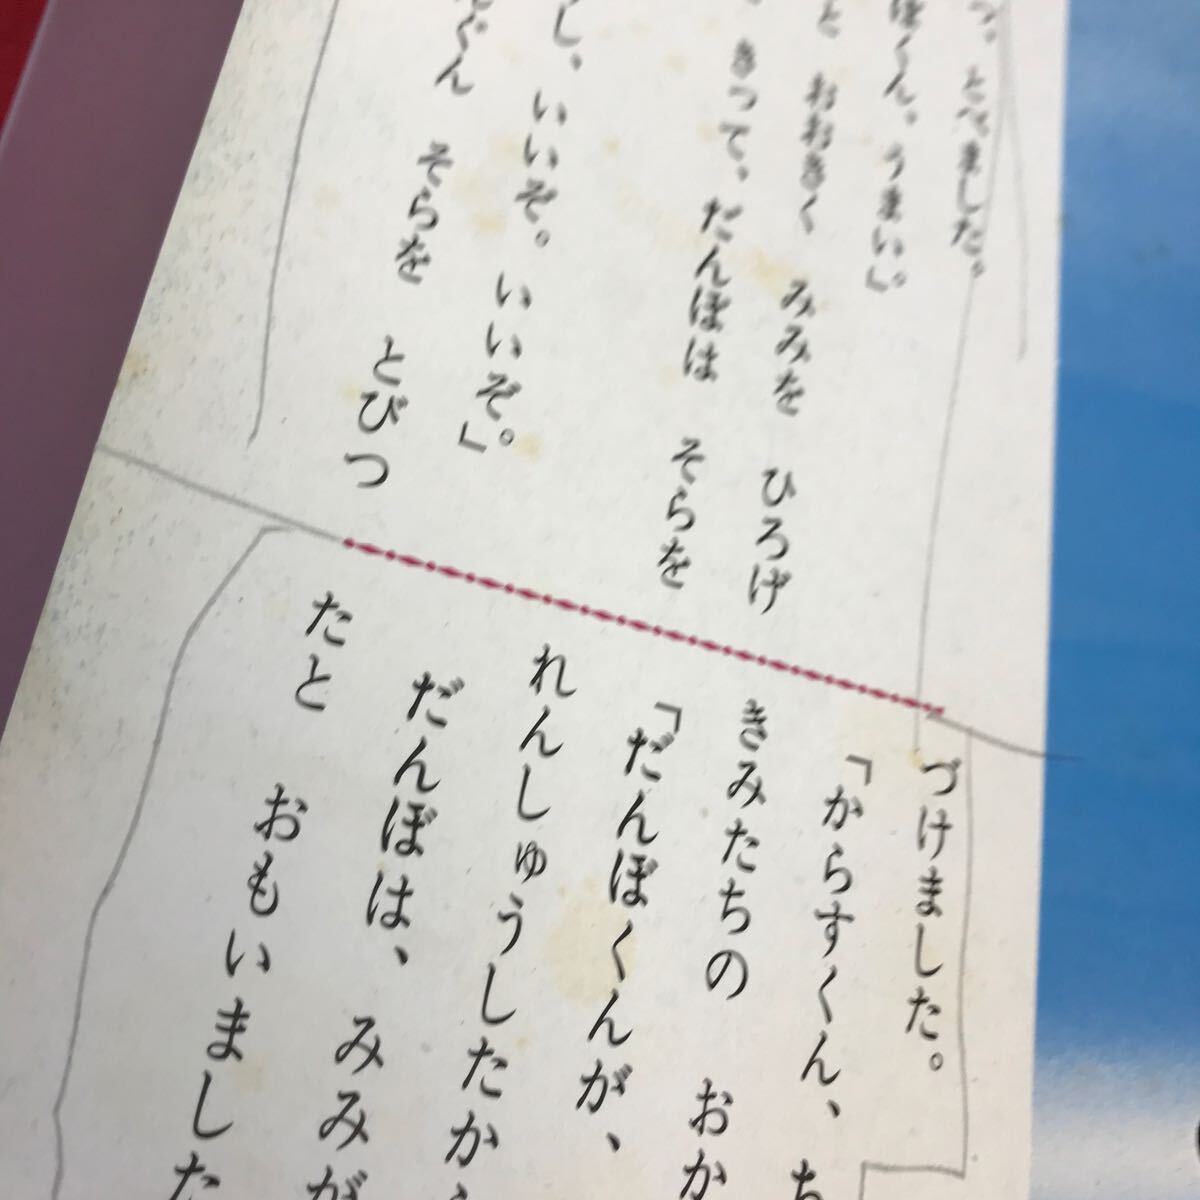 つ、とべました。
ぼくん。うまい。」
と おおきく みみを ひろげ
きって。だんぼは そらを
し、いいぞ。いいぞ。」
そらを とびつ
づけました。
「からすくん、ち
きみたちの おか
「だんぼくんが、
れんしゅうしたから
だんぼは、みみが
たと おもいました